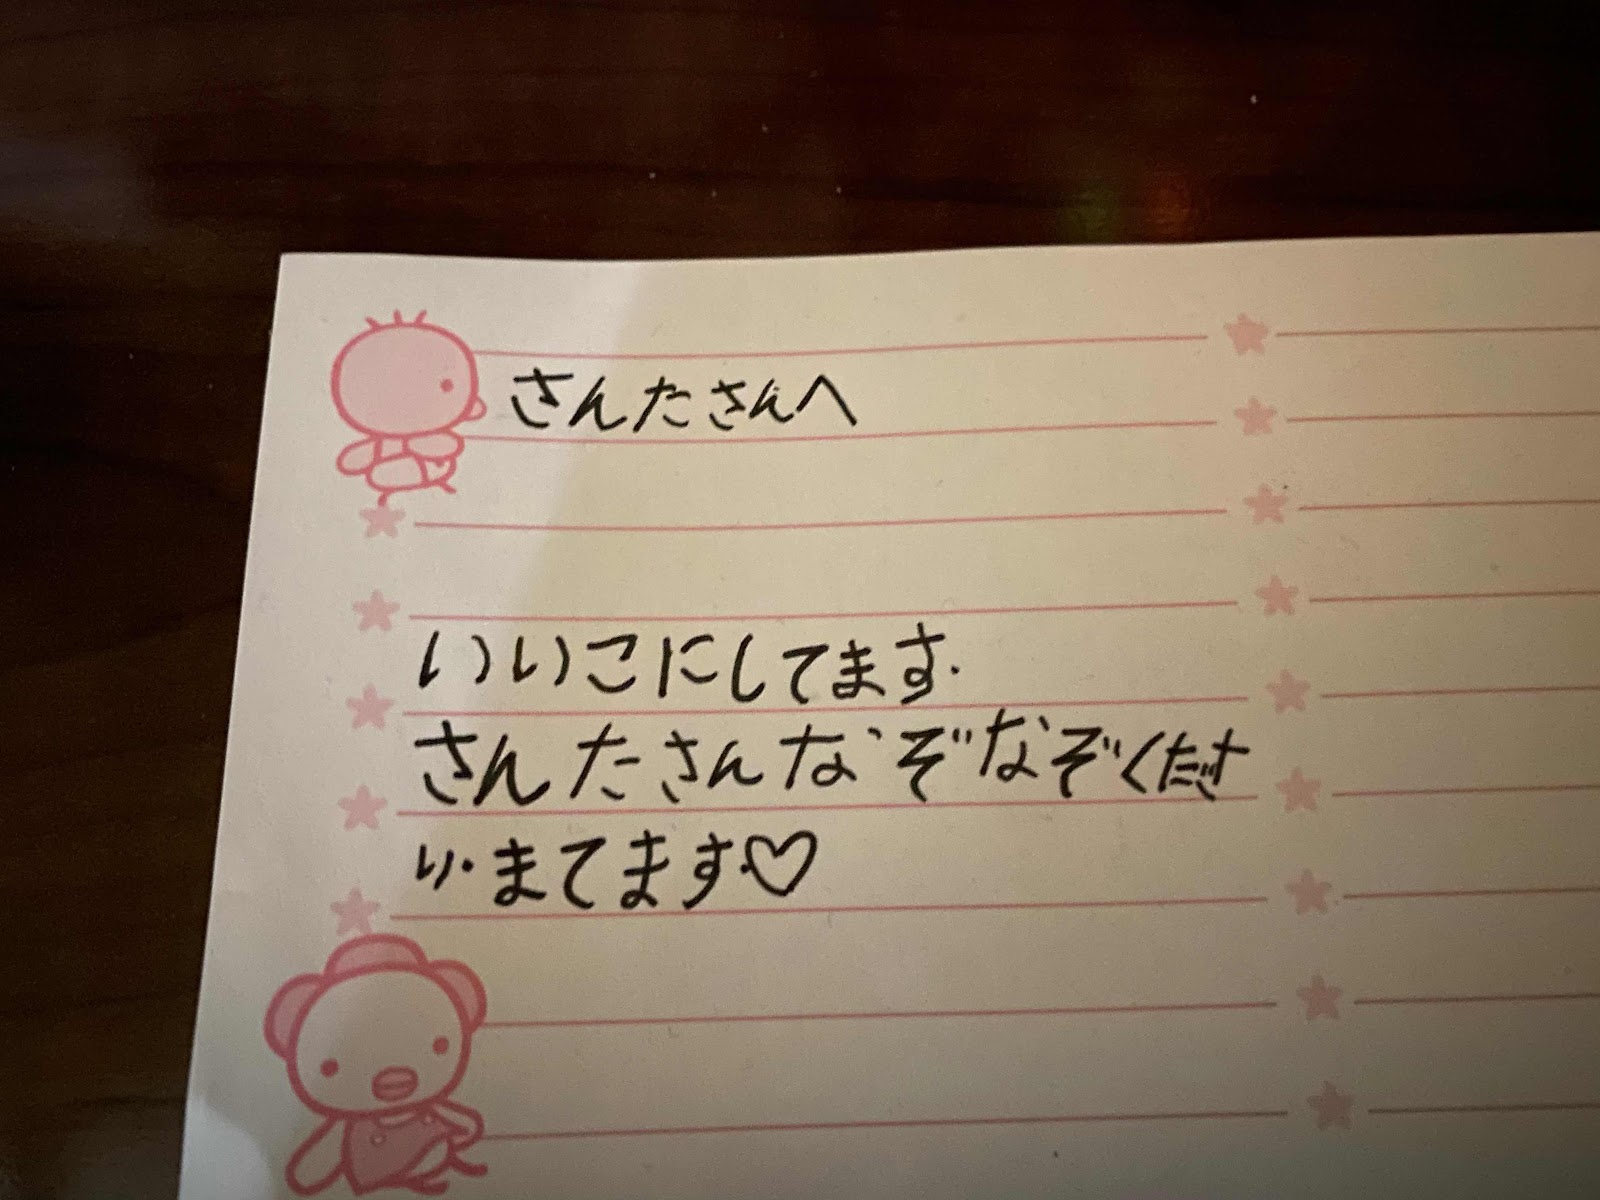 さんたさんへ
いいこにしてます.
さんたさんなぞなぞくださ
い.まてます♡